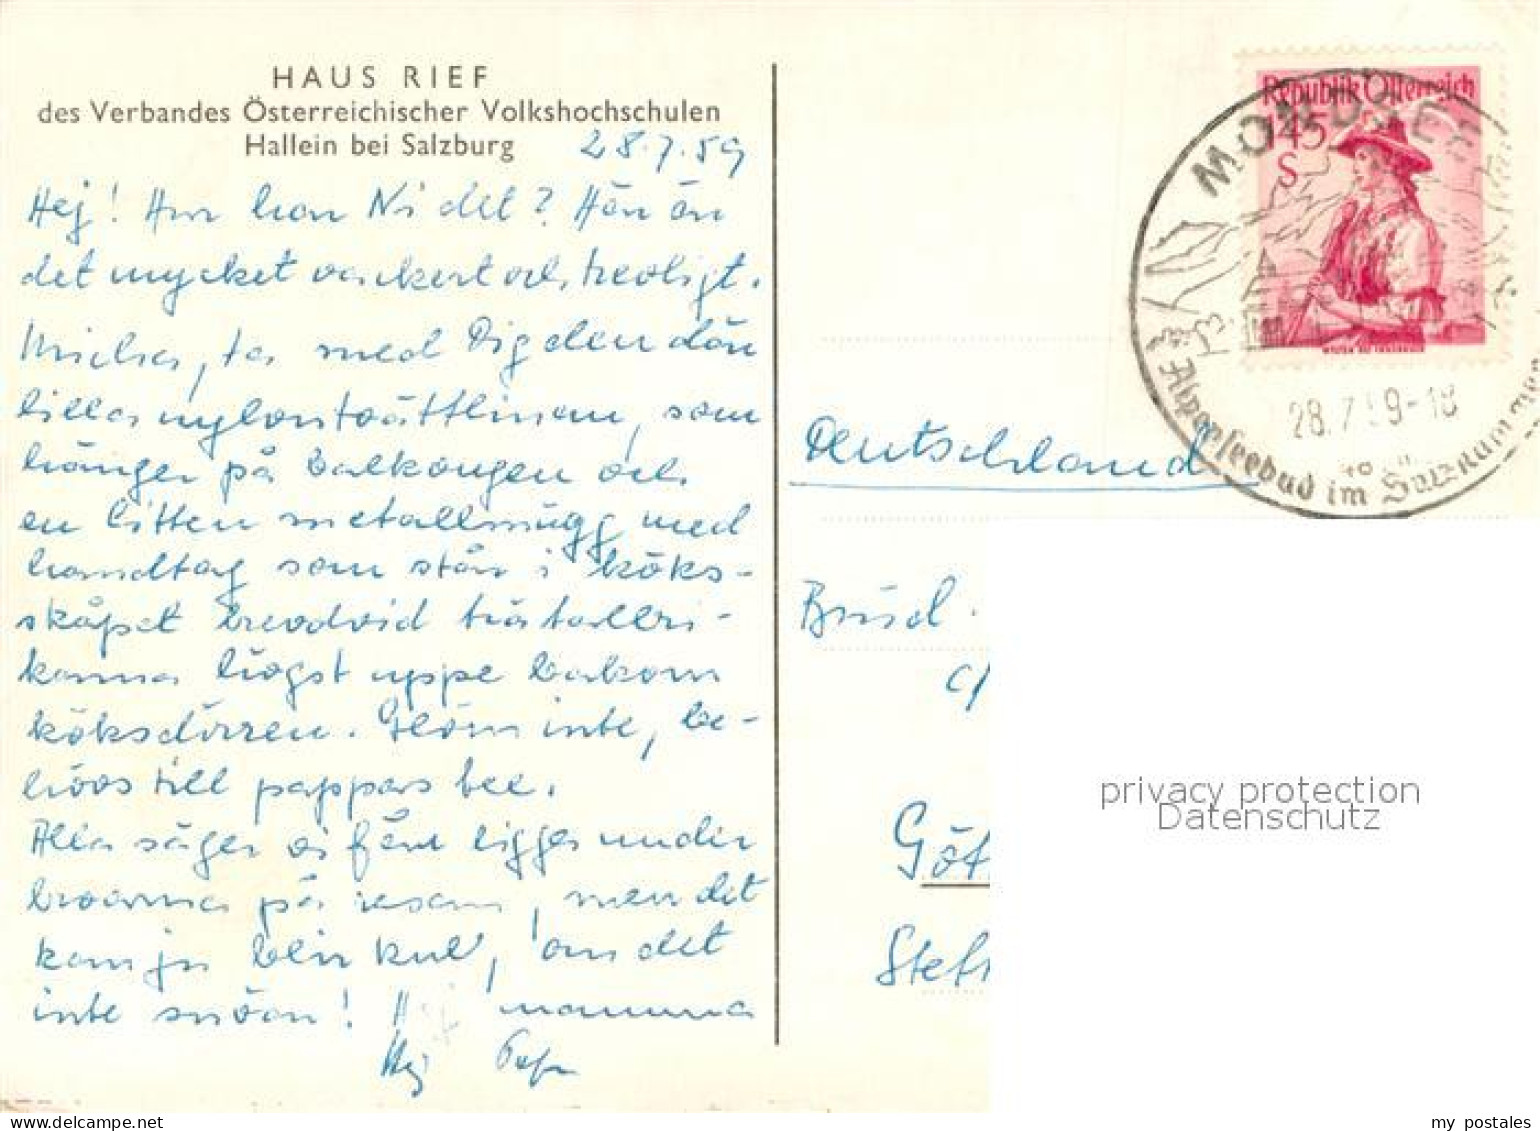 HAUS RIEF
des Verbandes Österreichischer Volkshochschulen
Hallein bei Salzburg
28.7.59
Hej! Hur har Ni det? Här är
det mycket vackert och trevligt.
Micha, ta med Dig den där
lilla nylontvättlinan, som
hänger på balkongen och
en liten metallmugg med
handtag som står i köks-
skåpet bredvid tetallri-
karna högst uppe bakom
köksdörren. Glöm inte, be-
hövs till pappas
Alla säger vi får ligga under
på resan, men det
kan ju bli kul, om det
inte snöar! mamma
Hej
Republik Österreich
1.45
S
MONDSEE
28.7.59-18
Alpenseebad im Salzkammergut
Deutschland
c/
Göt
privacy protection
Datenschutz
www.delcampe.net
my_postales